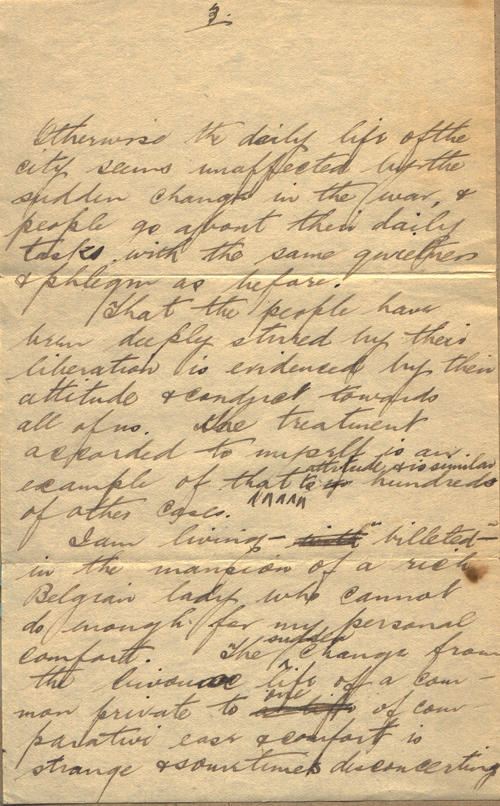 3.
Otherwise the daily life of the
city seems unaffected by the
sudden change in the war, &
people go about their daily
tasks with the same quietness
& phlegm as before.
That the people have
been deeply stirred by their
liberation is evidenced by their
attitude & conduct towards
all of us. The treatment
accorded to myself is an
attitude & is similar
example of that to hundreds
of other cases.
I am living - "billeted" -
in the mansion of a rich
Belgian lady who cannot
do enough for my personal
sudden
comfort. The change from
the bivouac life of a com-
one
mon private to of com-
parative ease & comfort is
strange & sometimes disconcerting